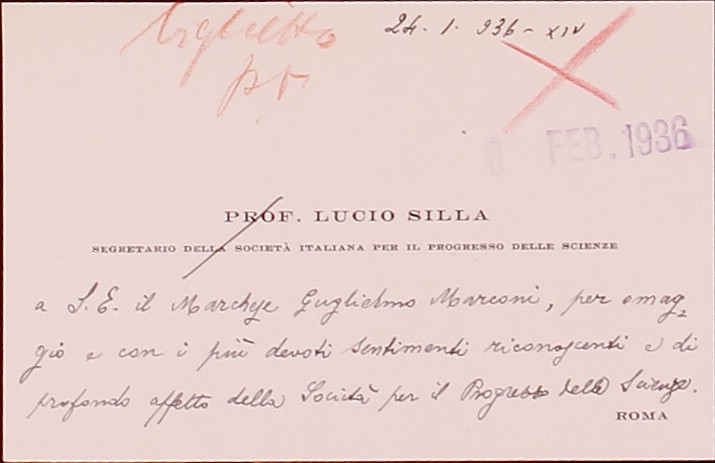 biglietto
pr
24. 1. 936 - XIV
8 FEB. 1936
PROF. LUCIO SILLA
SEGRETARIO DELLA SOCIETÀ ITALIANA PER IL PROGRESSO DELLE SCIENZE
a S. E. il Marchese Guglielmo Marconi, per omag,
gio e con i più devoti sentimenti riconoscenti e di
profondo affetto della Società per il Progresso delle Scienze.
ROMA